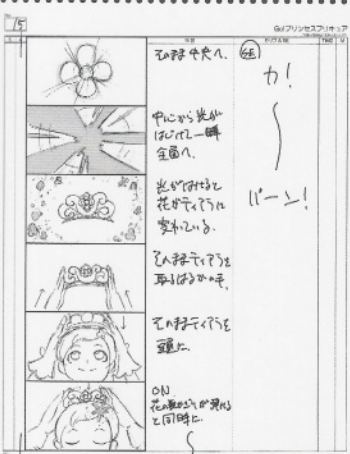 15
Go!プリンセスプリキュア
そのまま中央へ。
SE
カ!
中心から光が
はじけて一瞬
全面へ。
光がはけると
花がティアラに
変わっている。
バーン!
そのままティアラを
取るはるかの手。
そのままティアラを
頭に。
ON
花の髪かざりが現れる
と同時に。